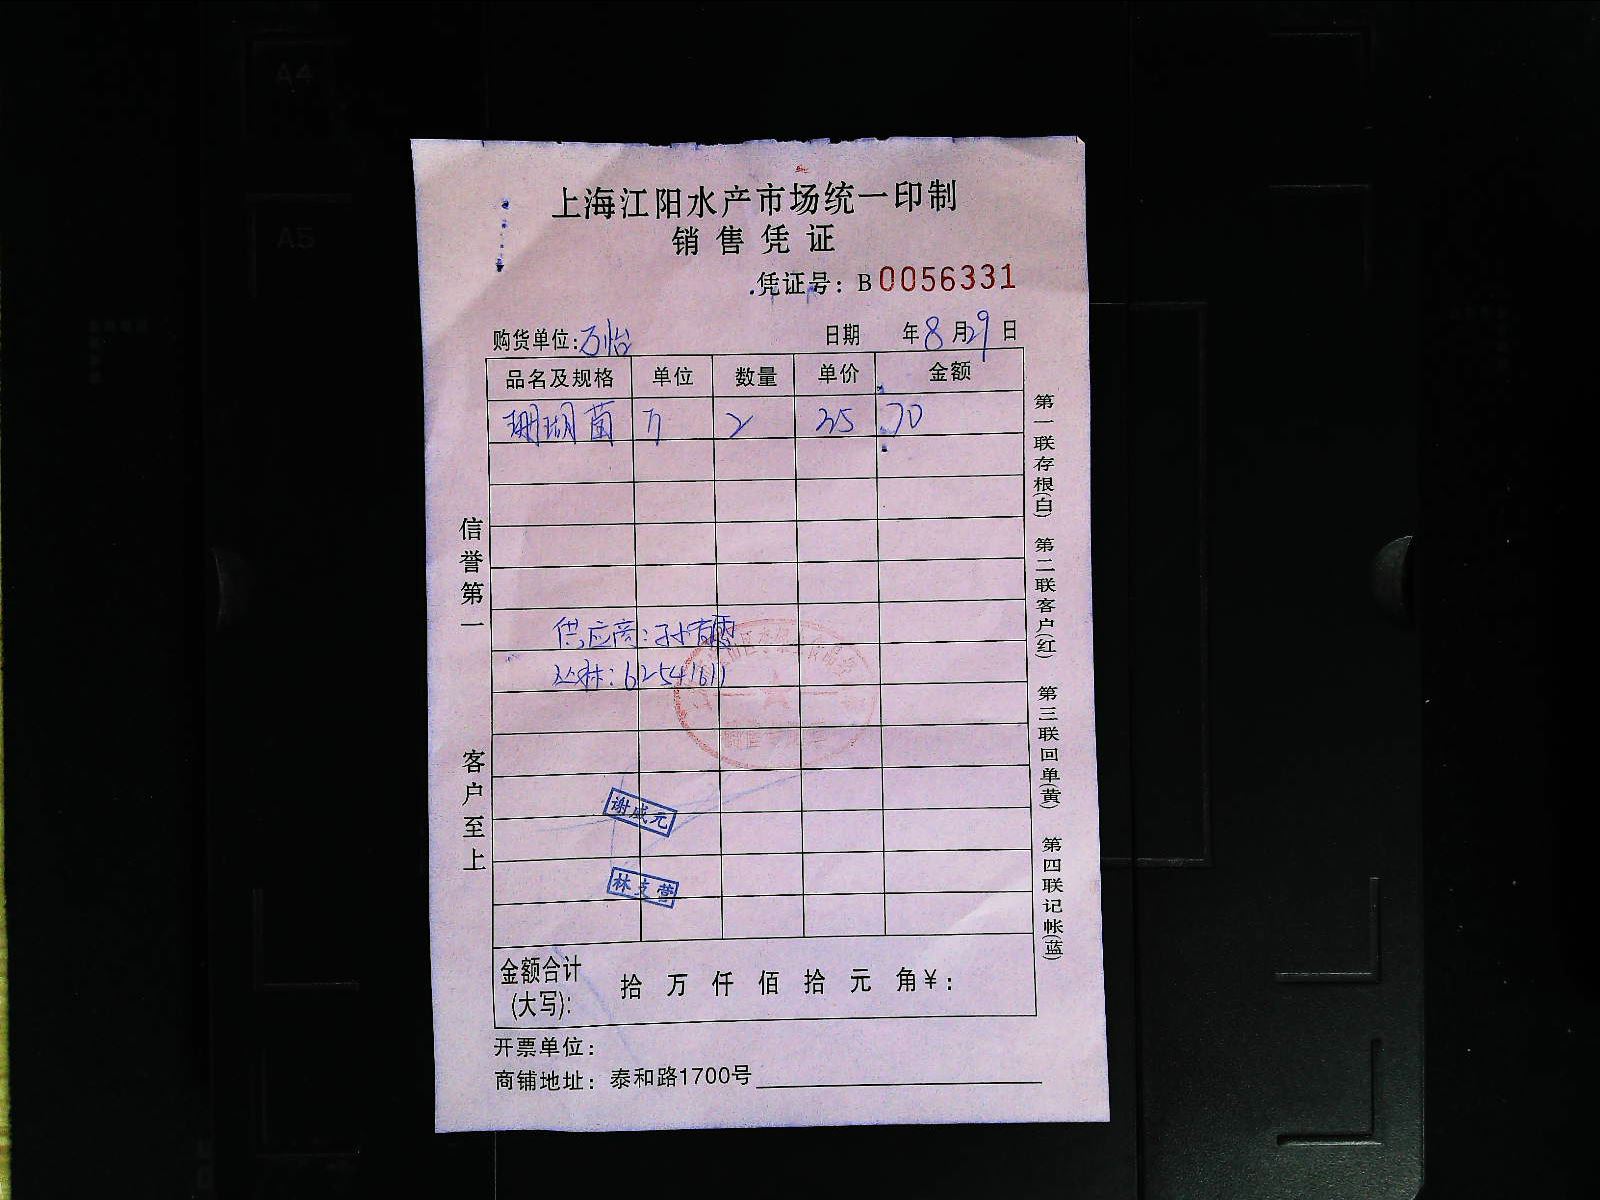 上海江阳水产市场统一印制
销售凭证
凭证号：B0056331
购货单位：万怡 日期 年8月29日
品名及规格 单位 数量 单价 金额
珊瑚菌 2 35 70
供应商：孙
丛林：62541611
谢成元
林支营
金额合计(大写)： 拾 万 仟 佰 拾 元 角￥：
开票单位：
商铺地址：泰和路1700号
信誉第一 客户至上
第一联存根(白) 第二联客户(红) 第三联回单(黄) 第四联记帐(蓝)
A4
A5